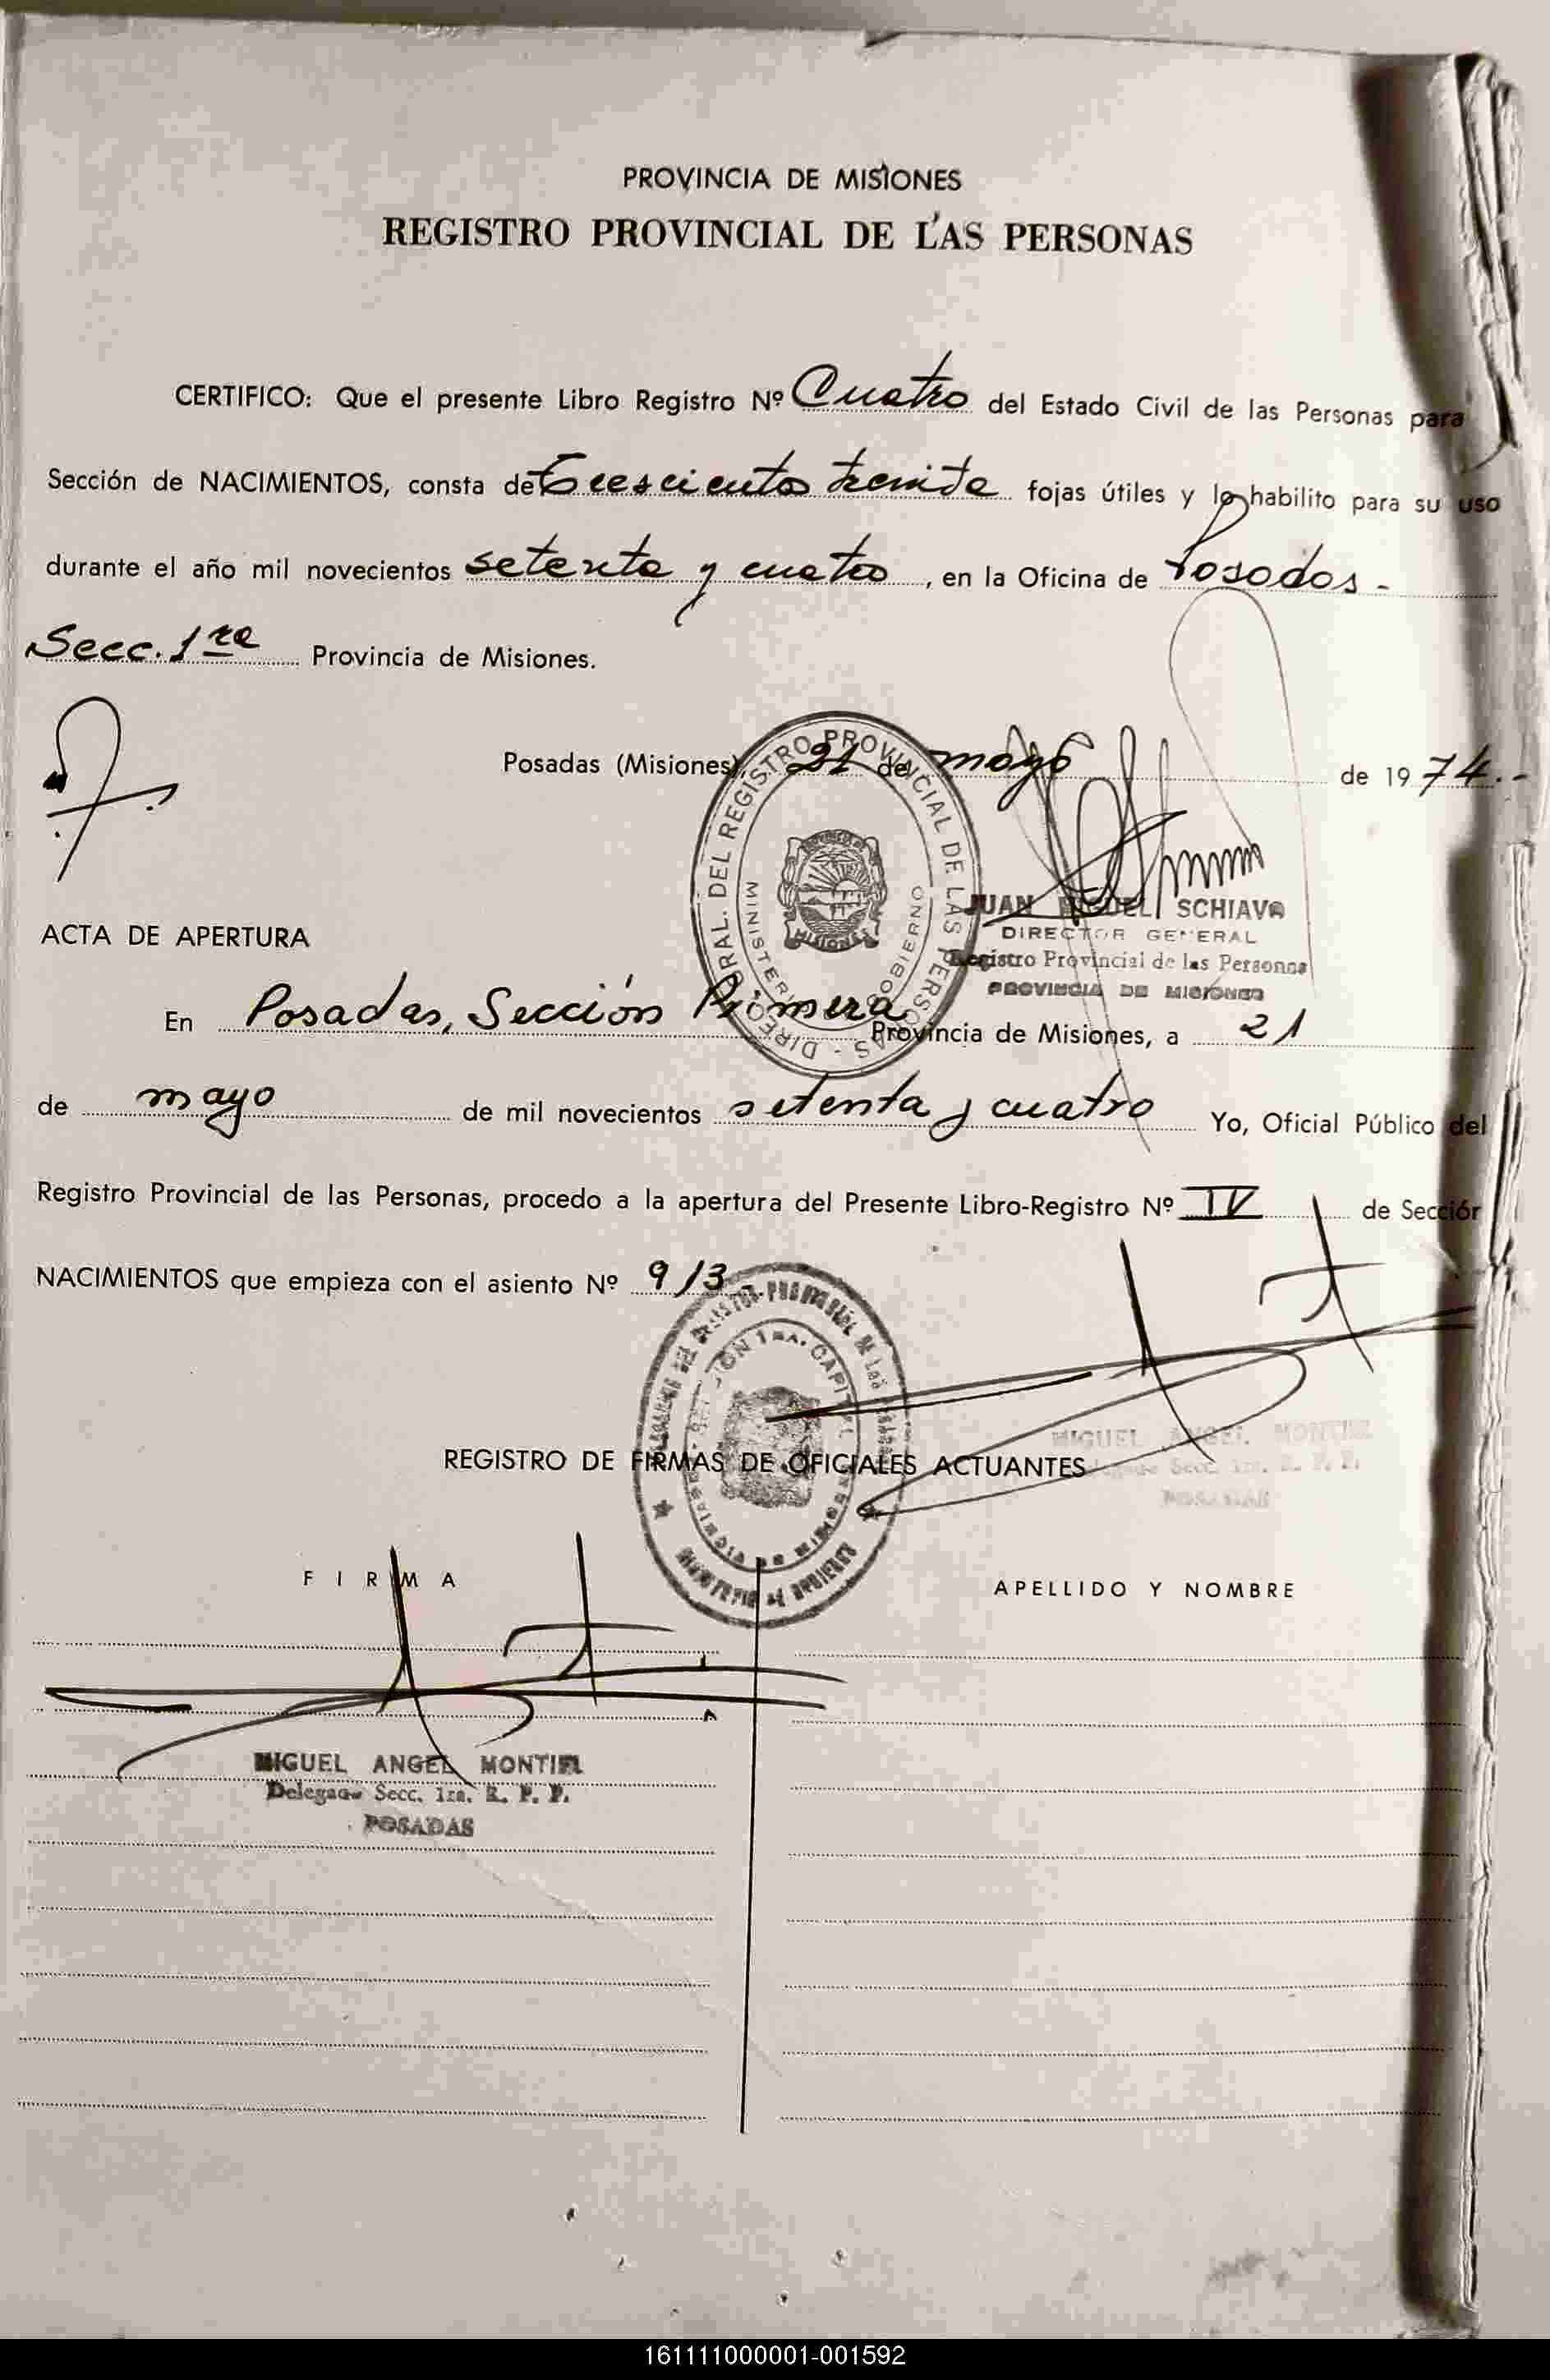 PROVINCIA DE MISIONES
REGISTRO PROVINCIAL DE LAS PERSONAS
CERTIFICO: Que el presente Libro Registro Nº Cuatro del Estado Civil de las Personas para
Sección de NACIMIENTOS, consta de Trescientos treinta fojas útiles y lo habilito para su uso
durante el año mil novecientos setenta y cuatro, en la Oficina de Posadas -
Secc. 1ra Provincia de Misiones.
Posadas (Misiones), 21 de mayo de 1974.-
DIRECC. GRAL. DEL REGISTRO PROVINCIAL DE LAS PERSONAS
MINISTERIO GOBIERNO
MISIONES
JUAN MIGUEL SCHIAVO
DIRECTOR GENERAL
Registro Provincial de las Personas
PROVINCIA DE MISIONES
ACTA DE APERTURA
En Posadas, Sección Primera Provincia de Misiones, a 21
de mayo de mil novecientos setenta y cuatro Yo, Oficial Público del
Registro Provincial de las Personas, procedo a la apertura del Presente Libro-Registro Nº IV de Sección
NACIMIENTOS que empieza con el asiento Nº 913
MIGUEL ANGEL MONTIEL
Secc. 1ra. R. P. P.
POSADAS
REGISTRO DE FIRMAS DE OFICIALES ACTUANTES
FIRMA APELLIDO Y NOMBRE
MIGUEL ANGEL MONTIEL
Delegado Secc. 1ra. R. P. P.
POSADAS
161111000001-001592